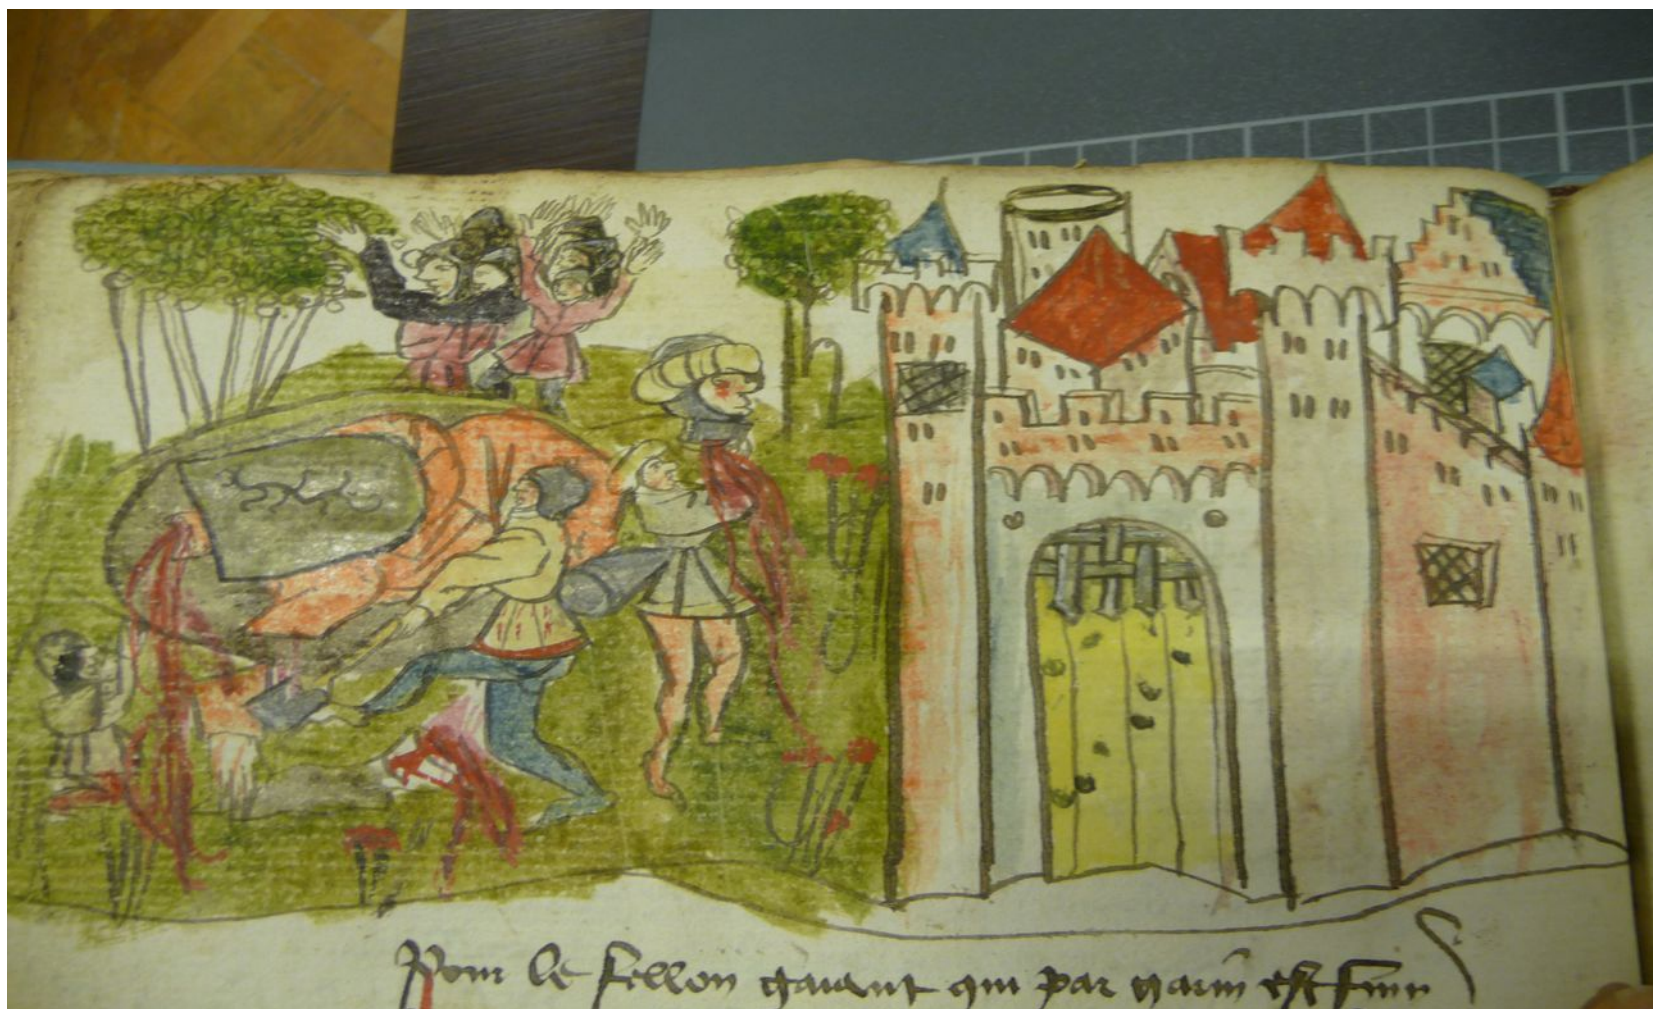 Pour le fellon gaiant qui par garin est fine